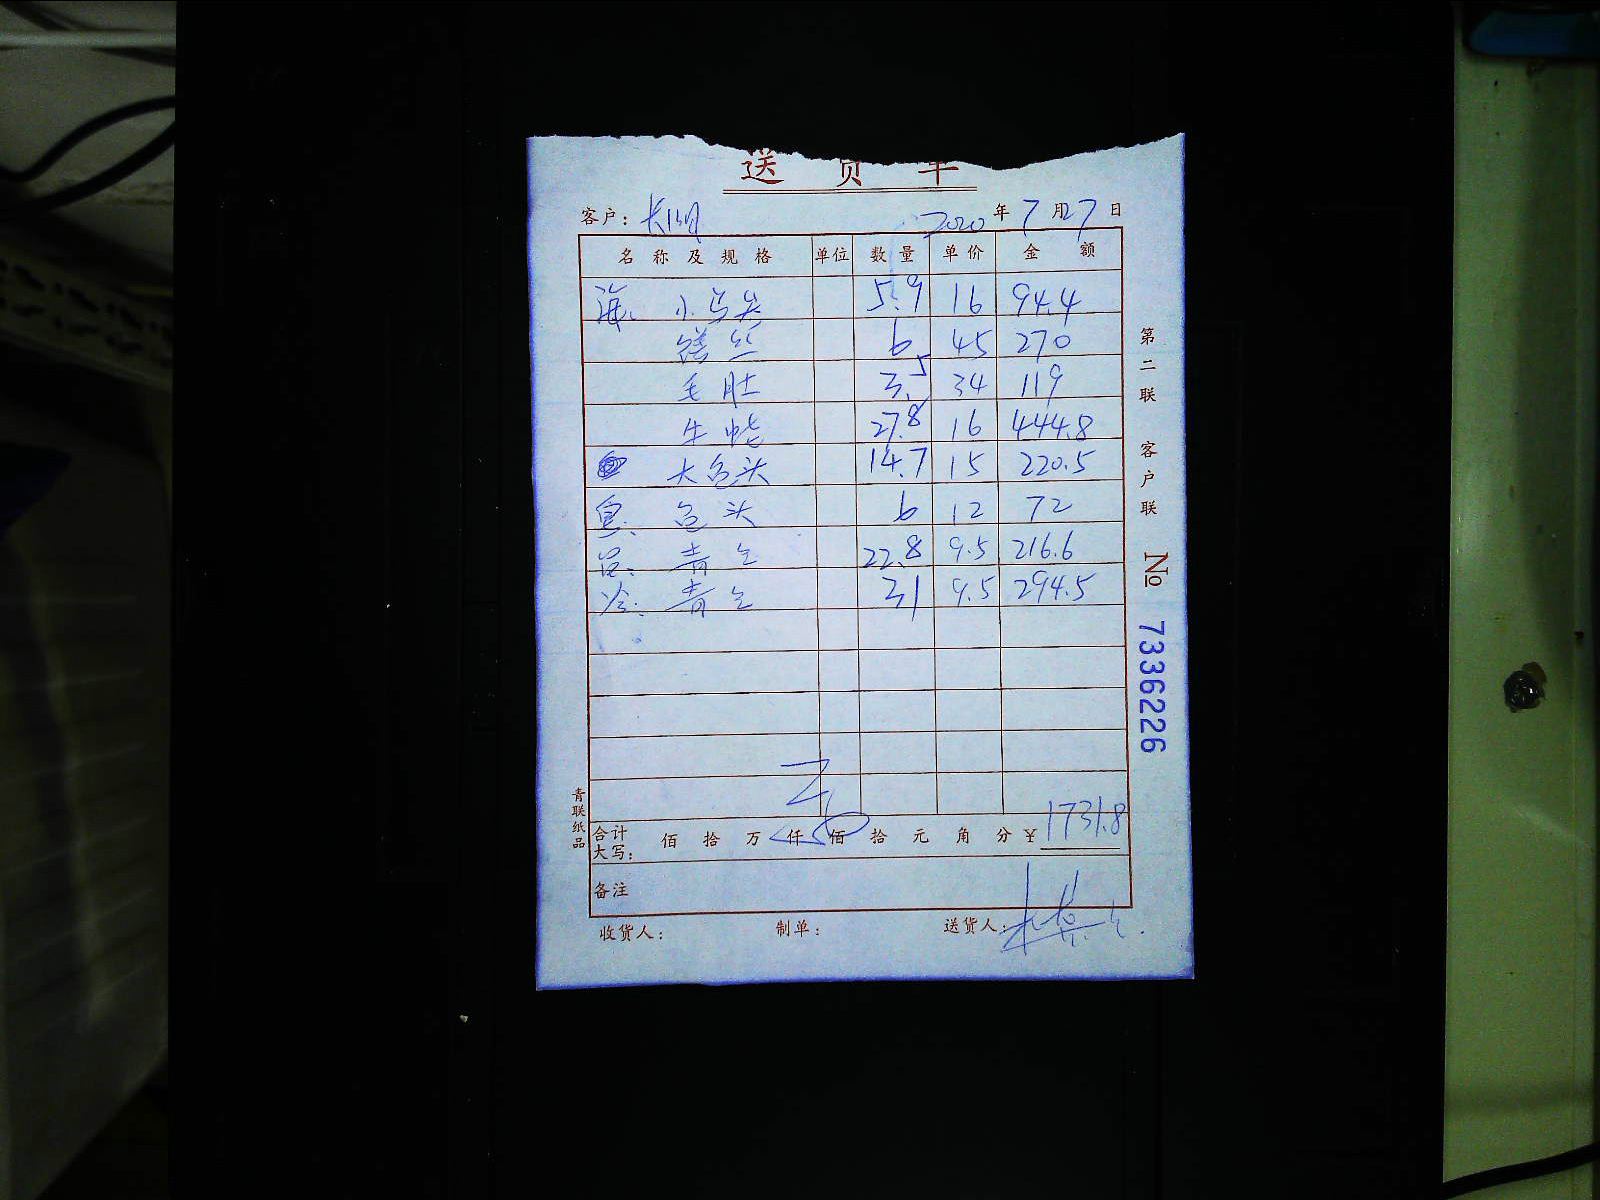 送货单
客户： 2020 年 7 月 27 日
名称及规格 单位 数量 单价 金额
海、 小乌头 5.9 16 94.4
丝 6 45 270
毛肚 3.5 34 119
牛 27.8 16 444.8
大乌头 14.7 15 220.5
头 6 12 72
青 22.8 9.5 216.6
冷： 青 31 9.5 294.5
合计大写： 佰 拾 万 仟 佰 拾 元 角 分 ¥ 1731.8
备注
收货人： 制单： 送货人：
第二联 客户联 № 7336226
青联纸品